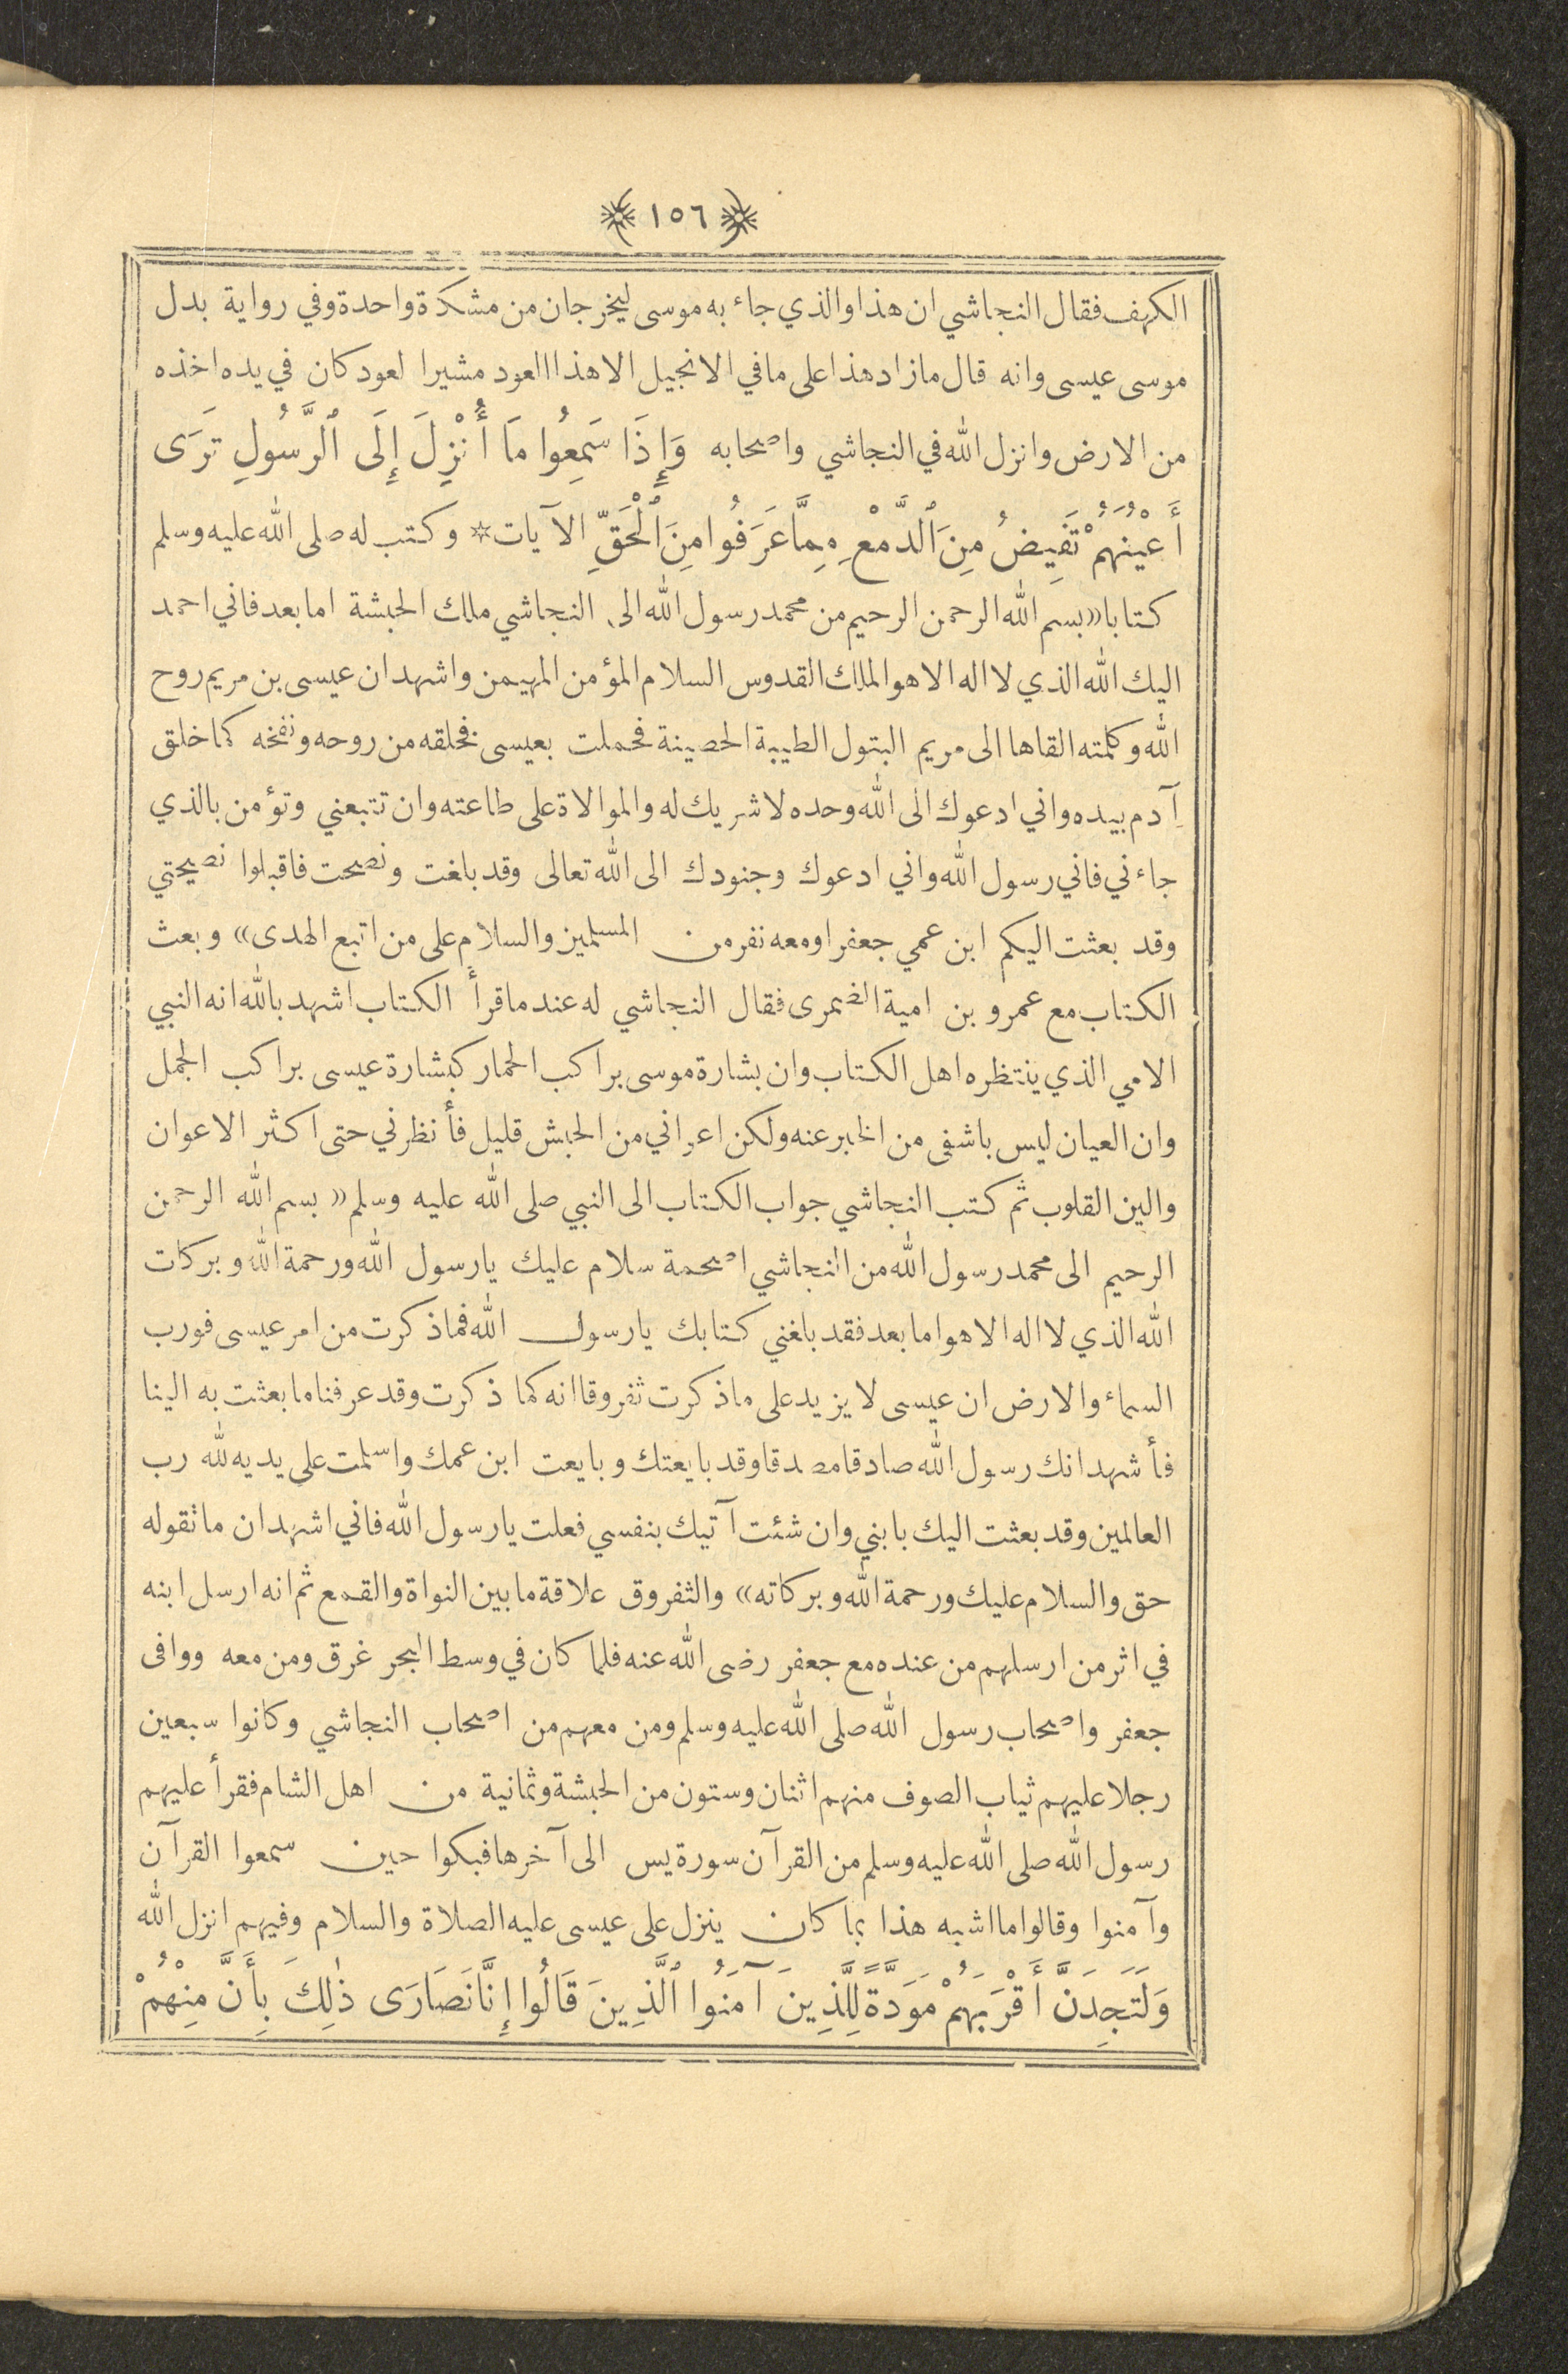 ١٥٦
الكهف فقال النجاشي ان هذا والذي جاء به موسى ليخرجان من مشكاة واحدة وفي رواية بدل
موسى عيسى وانه قال ما زاد هذا على ما في الانجيل الا هذا العود مشيرا لعود كان في يده اخذه
من الارض وانزل الله في النجاشي واصحابه وَإِذَا سَمِعُوا مَا أُنْزِلَ إِلَى ٱلرَّسُولِ تَرَى
أَعْيُنَهُمْ تَفِيضُ مِنَ ٱلدَّمْعِ مِمَّا عَرَفُوا مِنَ ٱلْحَقِّ الآيات * وكتب له صلى الله عليه وسلم
كتابا «بسم الله الرحمن الرحيم من محمد رسول الله الى النجاشي ملك الحبشة اما بعد فاني احمد
اليك الله الذي لا اله الا هو الملك القدوس السلام المؤمن المهيمن واشهد ان عيسى بن مريم روح
الله وكلمته القاها الى مريم البتول الطيبة الحصينة فحملت بعيسى فخلقه من روحه ونفخه كما خلق
آدم بيده واني ادعوك الى الله وحده لا شريك له والموالاة على طاعته وان تتبعني وتؤمن بالذي
جاءني فاني رسول الله واني ادعوك وجنودك الى الله تعالى وقد بلغت ونصحت فاقبلوا نصيحتي
وقد بعثت اليكم ابن عمي جعفرا ومعه نفر من المسلمين والسلام على من اتبع الهدى» وبعث
الكتاب مع عمرو بن امية الضمرى فقال النجاشي له عند ما قرأ الكتاب اشهد بالله انه النبي
الامي الذي ينتظره اهل الكتاب وان بشارة موسى براكب الحمار كبشارة عيسى براكب الجمل
وان العيان ليس باشفى من الخبر عنه ولكن اعواني من الحبش قليل فأنظرني حتى اكثر الاعوان
والين القلوب ثم كتب النجاشي جواب الكتاب الى النبي صلى الله عليه وسلم «بسم الله الرحمن
الرحيم الى محمد رسول الله من النجاشي اصحمة سلام عليك يا رسول الله ورحمة الله وبركات
الله الذي لا اله الا هو اما بعد فقد بلغني كتابك يا رسول الله فما ذكرت من امر عيسى فورب
السماء والارض ان عيسى لا يزيد على ما ذكرت ثفروقا انه كما ذكرت وقد عرفنا ما بعثت به الينا
فأشهد انك رسول الله صادقا مصدقا وقد بايعتك وبايعت ابن عمك واسلمت على يديه لله رب
العالمين وقد بعثت اليك بابني وان شئت آتيك بنفسي فعلت يا رسول الله فاني اشهد ان ما تقوله
حق والسلام عليك ورحمة الله وبركاته» والثفروق علاقة ما بين النواة والقمع ثم انه ارسل ابنه
في اثر من ارسلهم من عنده مع جعفر رضى الله عنه فلما كان في وسط البحر غرق ومن معه ووافى
جعفر واصحاب رسول الله صلى الله عليه وسلم ومن معهم من اصحاب النجاشي وكانوا سبعين
رجلا عليهم ثياب الصوف منهم اثنان وستون من الحبشة وثمانية من اهل الشام فقرأ عليهم
رسول الله صلى الله عليه وسلم من القرآن سورة يس الى آخرها فبكوا حين سمعوا القرآن
وآمنوا وقالوا ما اشبه هذا بما كان ينزل على عيسى عليه الصلاة والسلام وفيهم انزل الله
وَلَتَجِدَنَّ أَقْرَبَهُمْ مَوَدَّةً لِلَّذِينَ آمَنُوا ٱلَّذِينَ قَالُوا إِنَّا نَصَارَى ذٰلِكَ بِأَنَّ مِنْهُمْ